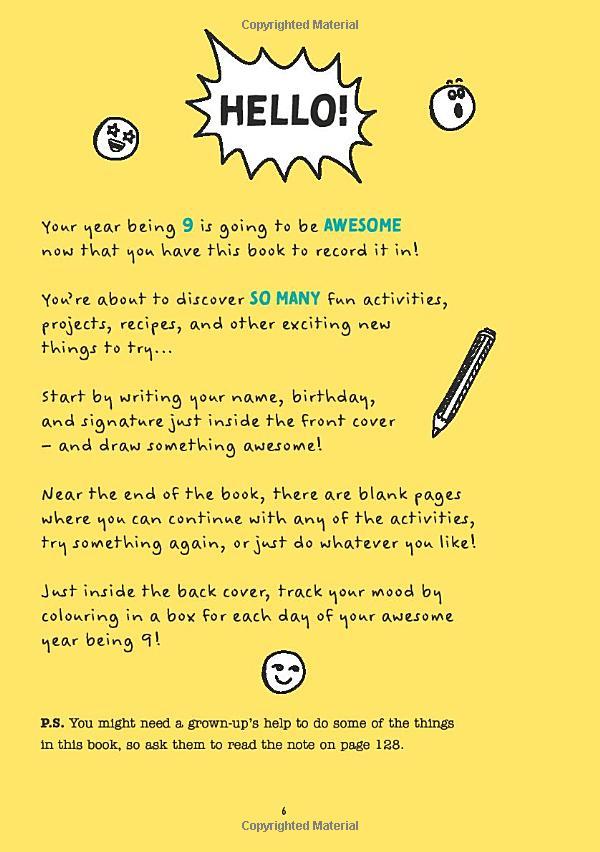 Copyrighted Material
HELLO!
Your year being 9 is going to be AWESOME
now that you have this book to record it in!
You're about to discover SO MANY fun activities,
projects, recipes, and other exciting new
things to try...
Start by writing your name, birthday,
and signature just inside the front cover
– and draw something awesome!
Near the end of the book, there are blank pages
where you can continue with any of the activities,
try something again, or just do whatever you like!
Just inside the back cover, track your mood by
colouring in a box for each day of your awesome
year being 9!
P.S. You might need a grown-up's help to do some of the things
in this book, so ask them to read the note on page 128.
6
Copyrighted Material